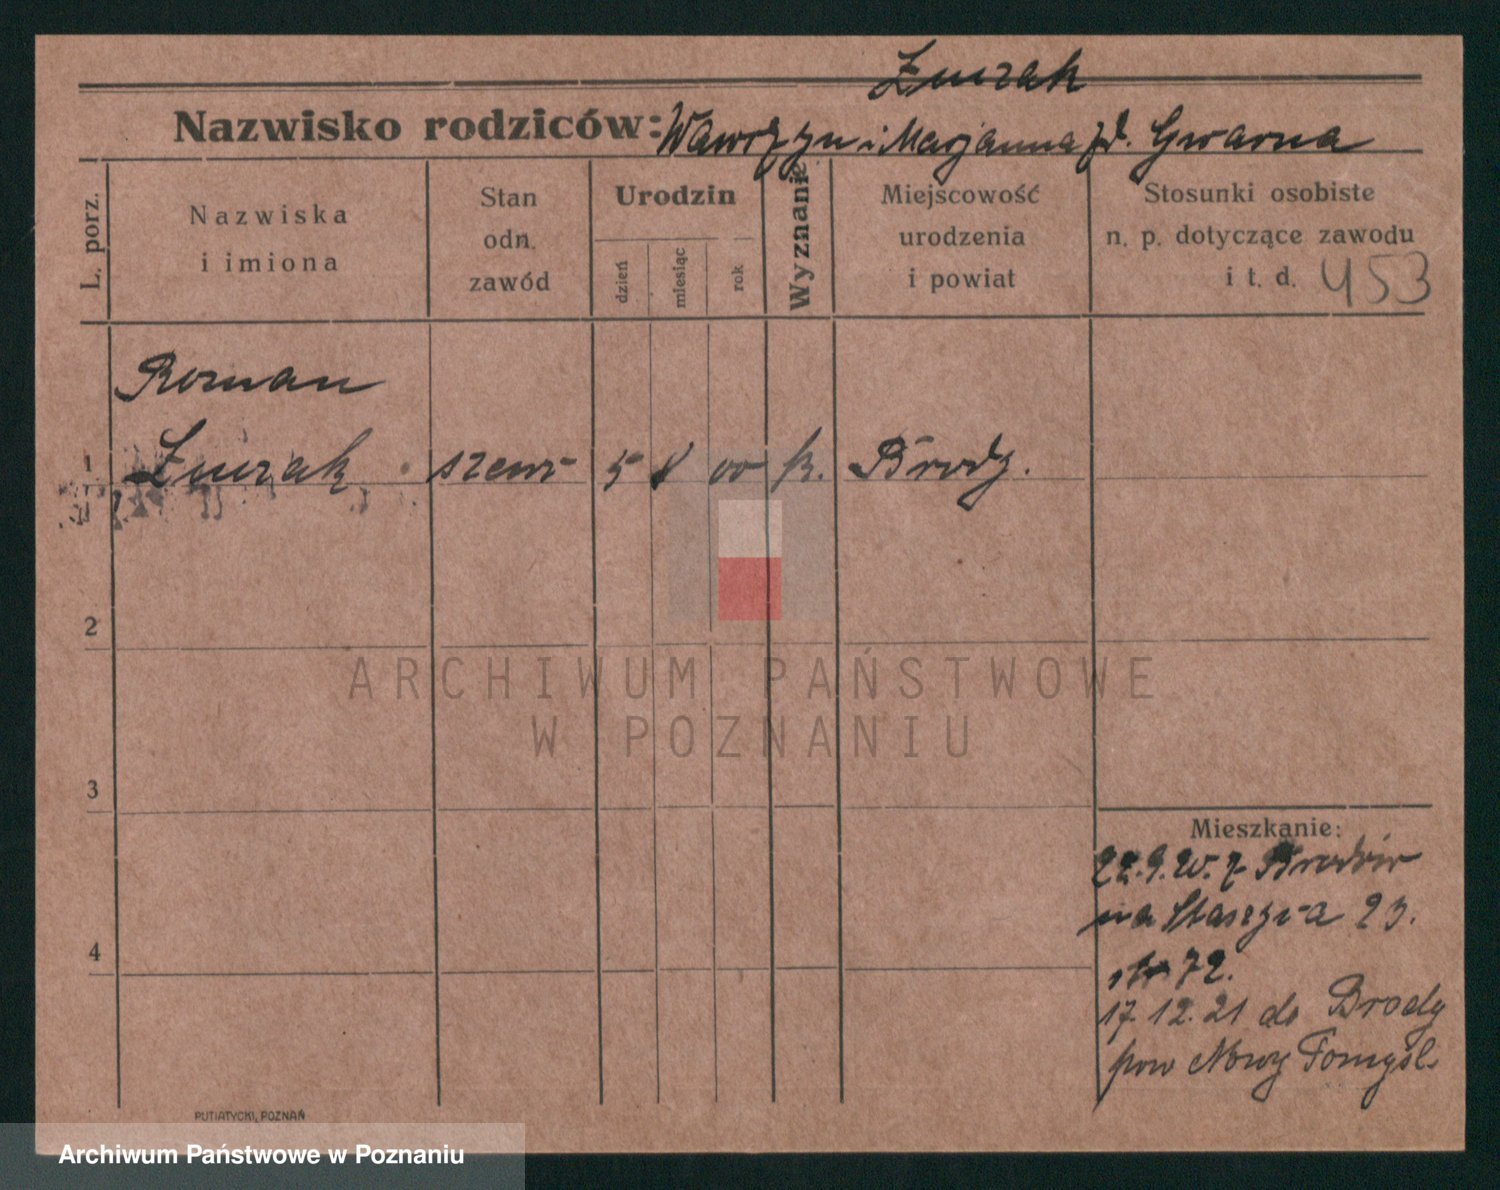 Żurzak
Nazwisko rodziców: Wawrzyn i Marjanna zd. Gwarna
L. porz.
Nazwiska
i imiona
Stan
odn.
zawód
Urodzin
dzień
miesiąc
rok
Wyznanie
Miejscowość
urodzenia
i powiat
Stosunki osobiste
n. p. dotyczące zawodu
i t. d. 453
Roman
1 Żurzak szewc 5 8 00 k. Brody.
2
3
4
Mieszkanie:
22.9.20. z Brodów
na Staszyca 23.
72.
17.12.21 do Brody
pow Nowy Tomyśl.
PUTIATYCKI, POZNAŃ
ARCHIWUM PAŃSTWOWE
W POZNANIU
Archiwum Państwowe w Poznaniu